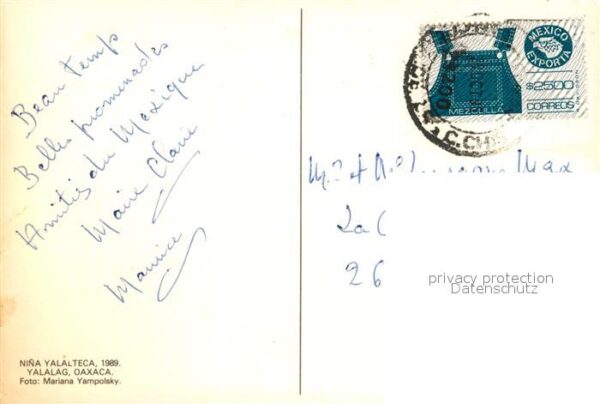 Beau temps
Belles promenades
Amitiés du Mexique
Marie Claire
Maurice
NIÑA YALALTECA, 1989.
YALALAG, OAXACA.
Foto: Mariana Yampolsky.
MEXICO
EXPORTA
$2500
CORREOS
MEZCLILLA
Max
26
privacy protection
Datenschutz